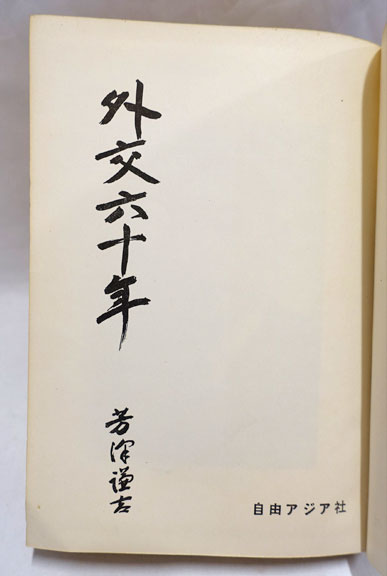 外交六十年
芳澤謙吉
自由アジア社